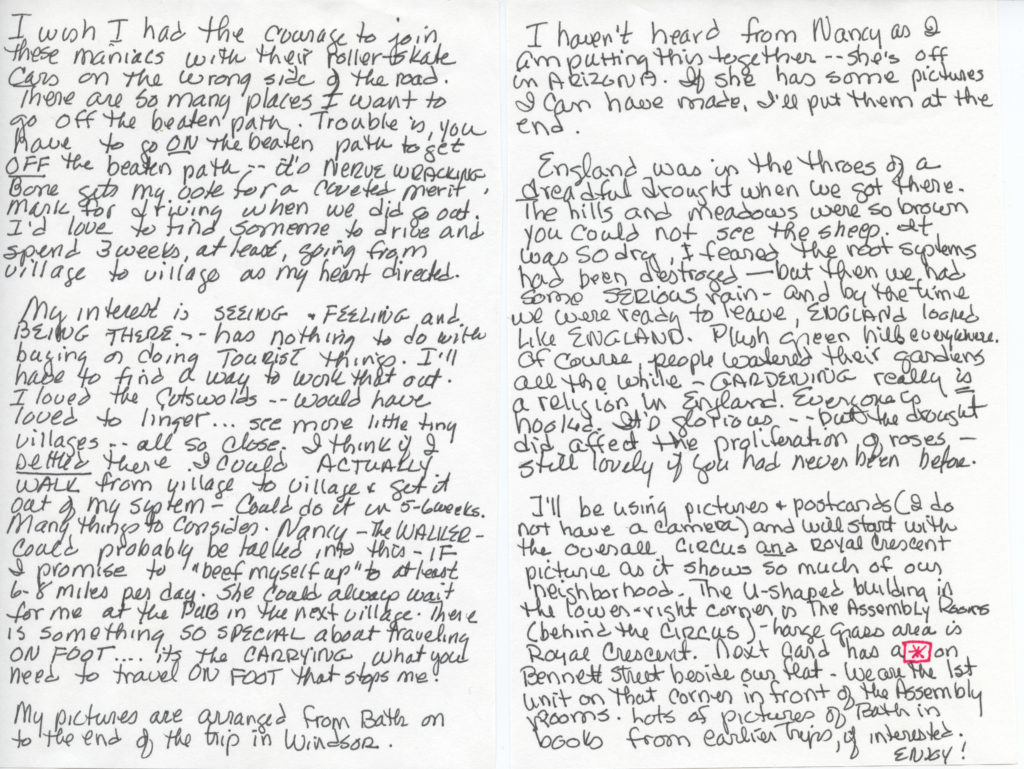 I wish I had the courage to join
these maniacs with their roller-skate
cars on the wrong side of the road.
There are so many places I want to
go off the beaten path. Trouble is, you
have to go ON the beaten path to get
OFF the beaten path -- it's NERVE WRACKING
gets my vote for a coveted merit
mark for driving when we did go out.
I'd love to find someone to drive and
spend 3 weeks, at least, going from
village to village as my heart directed.
My interest is SEEING + FEELING and
BEING THERE -- has nothing to do with
buying or doing TOURIST things. I'll
have to find a way to work that out.
I loved the Cotswolds -- would have
loved to linger... see more little tiny
villages -- all so close. I think if I
settled there I could ACTUALLY
WALK from village to village + get it
out of my system - Could do it in 5-6 weeks.
Many things to consider. Nancy - The WALKER -
could probably be talked into this - IF
I promise to "beef myself up" to at least
6-8 miles per day. She could always wait
for me at the PUB in the next village. There
is something SO SPECIAL about traveling
ON FOOT.... its the CARRYING what you
need to travel ON FOOT that stops me!
My pictures are arranged from Bath on
to the end of the trip in Windsor.
I haven't heard from Nancy as I
am putting this together -- she's off
in ARIZONA. If she has some pictures
I can have made, I'll put them at the
end.
England was in the throes of a
dreadful drought when we got there.
The hills and meadows were so brown
you could not see the sheep. It
was so dry, I feared the root systems
had been destroyed — but then we had
some SERIOUS rain - and by the time
we were ready to leave, ENGLAND looked
like ENGLAND. Plush green hills everywhere.
Of course, people watered their gardens
all the while - GARDENING really is
a religion in England. Everyone is
hooked. It's glorious -- but the drought
did affect the proliferation of roses -
still lovely if you had never been before.
I'll be using pictures + postcards (I do
not have a camera) and will start with
the overall CIRCUS and ROYAL Crescent
picture as it shows so much of our
neighborhood. The U-shaped building in
the lower-right corner is The Assembly Rooms
(behind the CIRCUS) - large grass area is
Royal Crescent. Next card has a * on
Bennett Street beside our flat - We are the 1st
unit on that corner in front of the Assembly
Rooms. Lots of pictures of Bath in
books from earlier trips, if interested.
ENJOY!